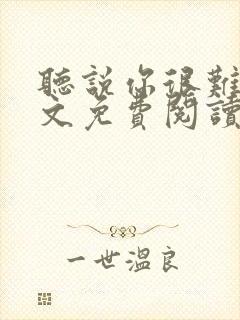 聽說你很難
文免費閱讀
一世溫良